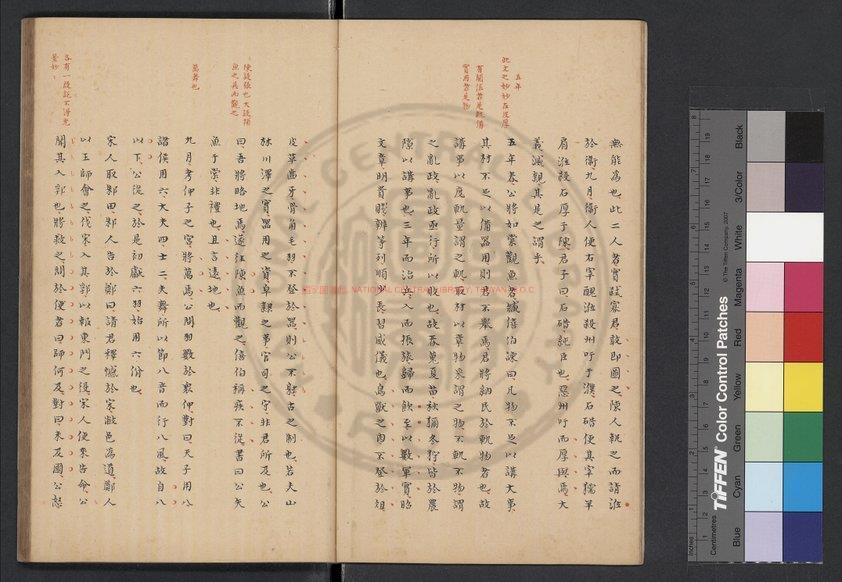 無能為也此二人者實弒寡君敢即圖之陳人執之而請涖
於衛九月衛人使右宰醜涖殺州吁于濮石碏使其宰獳羊
肩涖殺石厚于陳君子曰石碏純臣也惡州吁而厚與焉大
義滅親其是之謂乎
五年
五年春公將如棠觀魚者臧僖伯諫曰凡物不足以講大事
其材不足以備器用則君不舉焉君將納民於軌物者也故
講事以度軌量謂之軌取材以章物采謂之物不軌不物謂
之亂政亂政亟行所以敗也故春蒐夏苗秋獮冬狩皆於農
隙以講事也三年而治兵入而振旅歸而飲至以數軍實昭
文章明貴賤辨等列順少長習威儀也鳥獸之肉不登於俎
皮革齒牙骨角毛羽不登於器則公不射古之制也若夫山
林川澤之實器用之資皁隸之事官司之守非君所及也公
曰吾將略地焉遂往陳魚而觀之僖伯稱疾不從書曰公矢
魚于棠非禮也且言遠地也
萬舞也
九月考仲子之宮將萬焉公問羽數於眾仲對曰天子用八
諸侯用六大夫四士二夫舞所以節八音而行八風故自八
以下公從之於是初獻六羽始用六佾也
宋人取邾田邾人告於鄭曰請君釋憾於宋敝邑為道鄭人
以王師會之伐宋入其郛以報東門之役宋人使來告命公
聞其入郛也將救之問於使者曰師何及對曰未及國公怒
國家圖書館 NATIONAL CENTRAL LIBRARY, TAIWAN R.O.C
TIFFEN Color Control Patches
© The Tiffen Company, 2007
Centimetres
Inches
Blue
Cyan
Green
Yellow
Red
Magenta
White
3/Color
Black